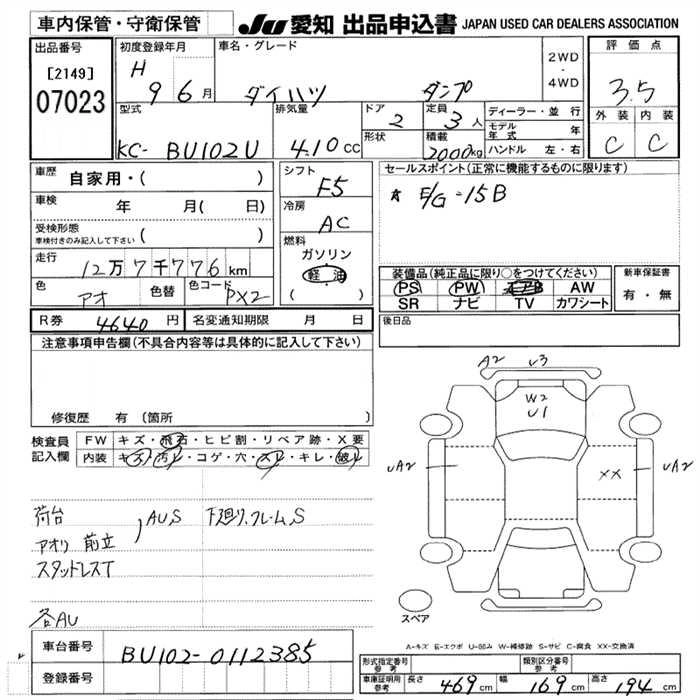 車内保管・守衛保管 JU 愛知 出品申込書 JAPAN USED CAR DEALERS ASSOCIATION
出品番号 初度登録年月 車名・グレード 評価点
[2149] H 9 6月 ダイハツ ダンプ 2WD ・ 4WD 3.5
07023 型式 排気量 ドア 2 定員 3人 ディーラー・並行 外装 内装
KC- BU102U 4.10 CC 形状 積載 2000kg モデル年式 年 C C
ハンドル 左・右
車歴 自家用・( ) シフト F5 セールスポイント(正常に機能するものに限ります)
車検 年 月( 日) 冷房 AC ☆ E/G=15B
受検形態 車検付きのみ記入して下さい ( ) 燃料
走行 12万7千776km ガソリン
軽油
( )
装備品(純正品に限り○をつけてください) 新車保証書
色 アオ 色替 色コード PX2 PS PW エアB AW 有・無
SR ナビ TV カワシート
R券 4640円 名変通知期限 月 日 後日品
注意事項申告欄(不具合内容等は具体的に記入して下さい)
修復歴 有(箇所
A2 U3
W2
U1
検査員記入欄 FW キズ・飛石・ヒビ割・リペア跡・X要
内装 キズ・汚レ・コゲ・穴・スレ・キレ・破レ
UA2 XX UA2
荷台 AU,S 下廻リ、フレーム,S
アオリ 前立
スタッドレスT
各AU
スペア
A-キズ E-エクボ U-凹み W-補修跡 S-サビ C-腐食 XX-交換済
車台番号 BU102-0112385
登録番号
形式指定番号 参考 類別区分番号 参考
車庫証明用 参考 長さ 469cm 幅 169cm 高さ 194cm